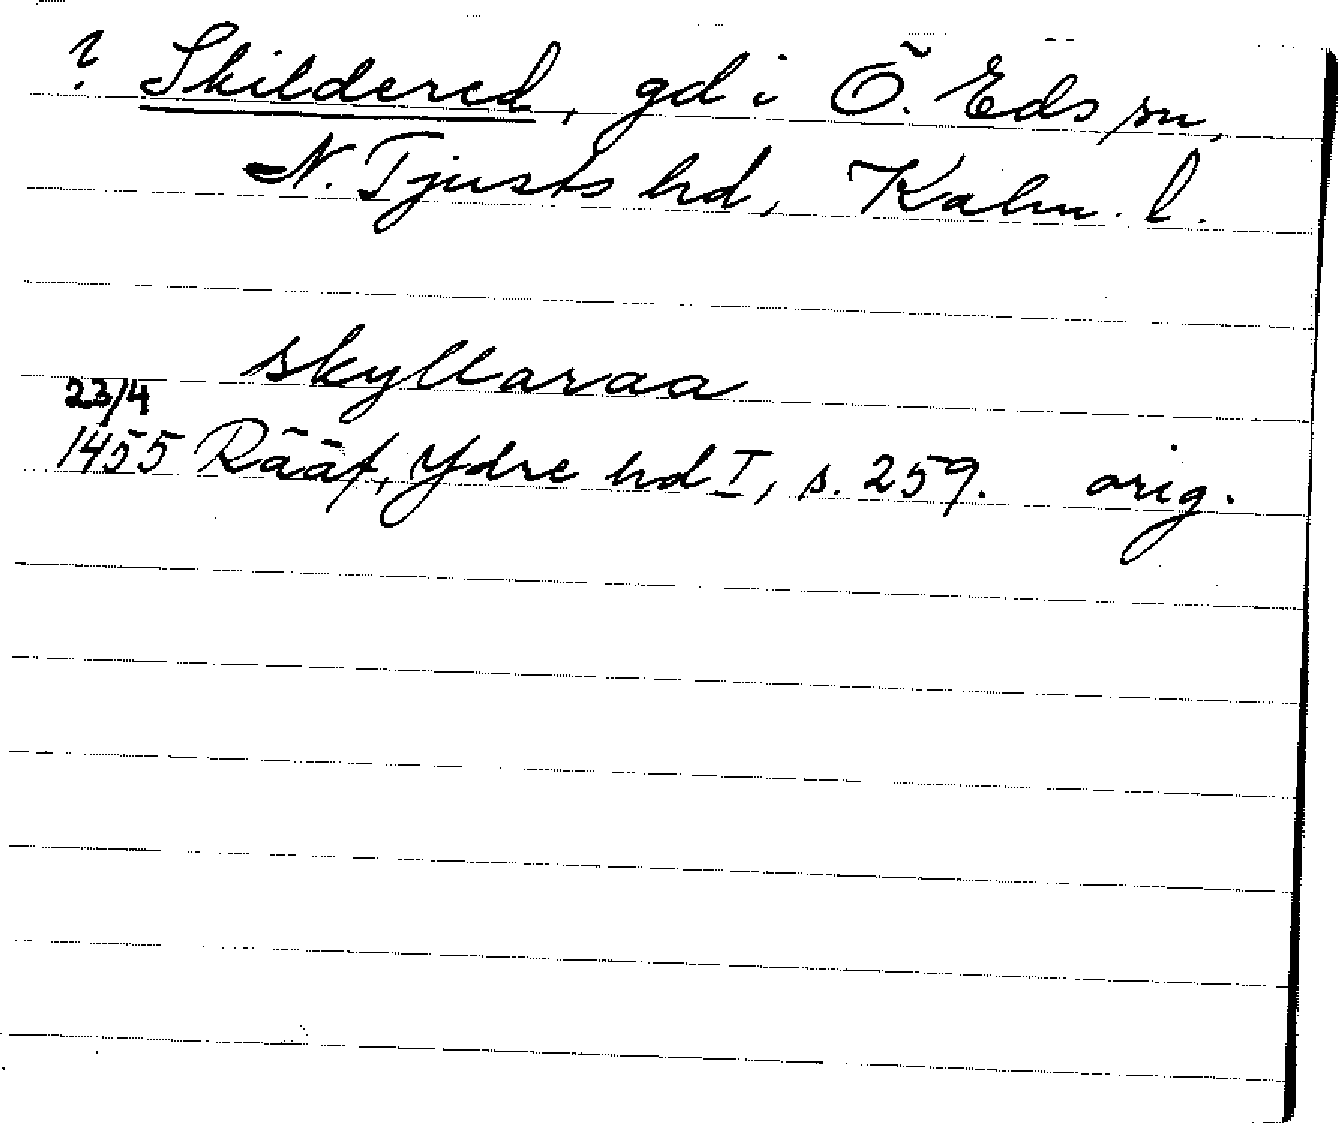 ? Skildered, gd i Ö. Eds sn,
N. Tjusts hd, Kalm. l.
skyllaraa
23/4
1455 Rääf, Ydre hd I, s. 259. orig.